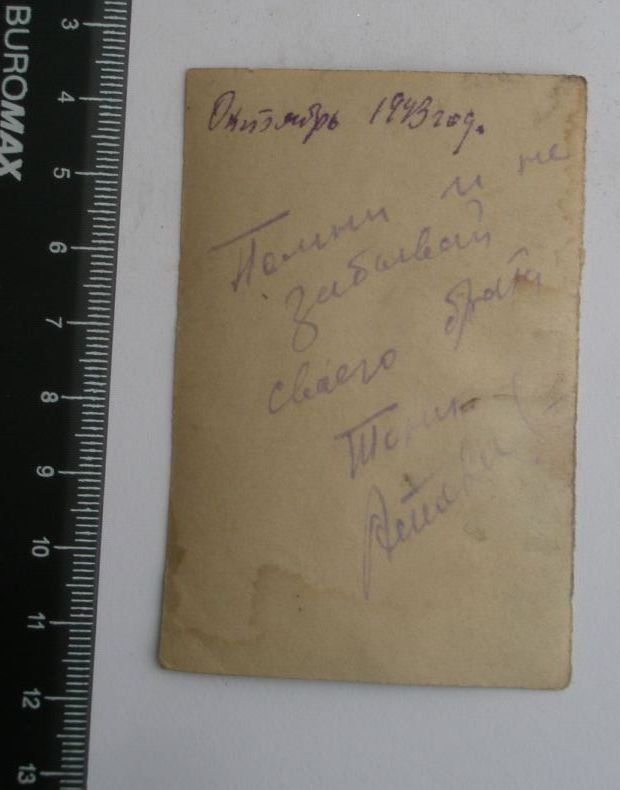 BUROMAX
3
4
5
6
7
8
9
10
11
12
13
Октябрь 1943 год.
Помни и не
забывай
своего брата